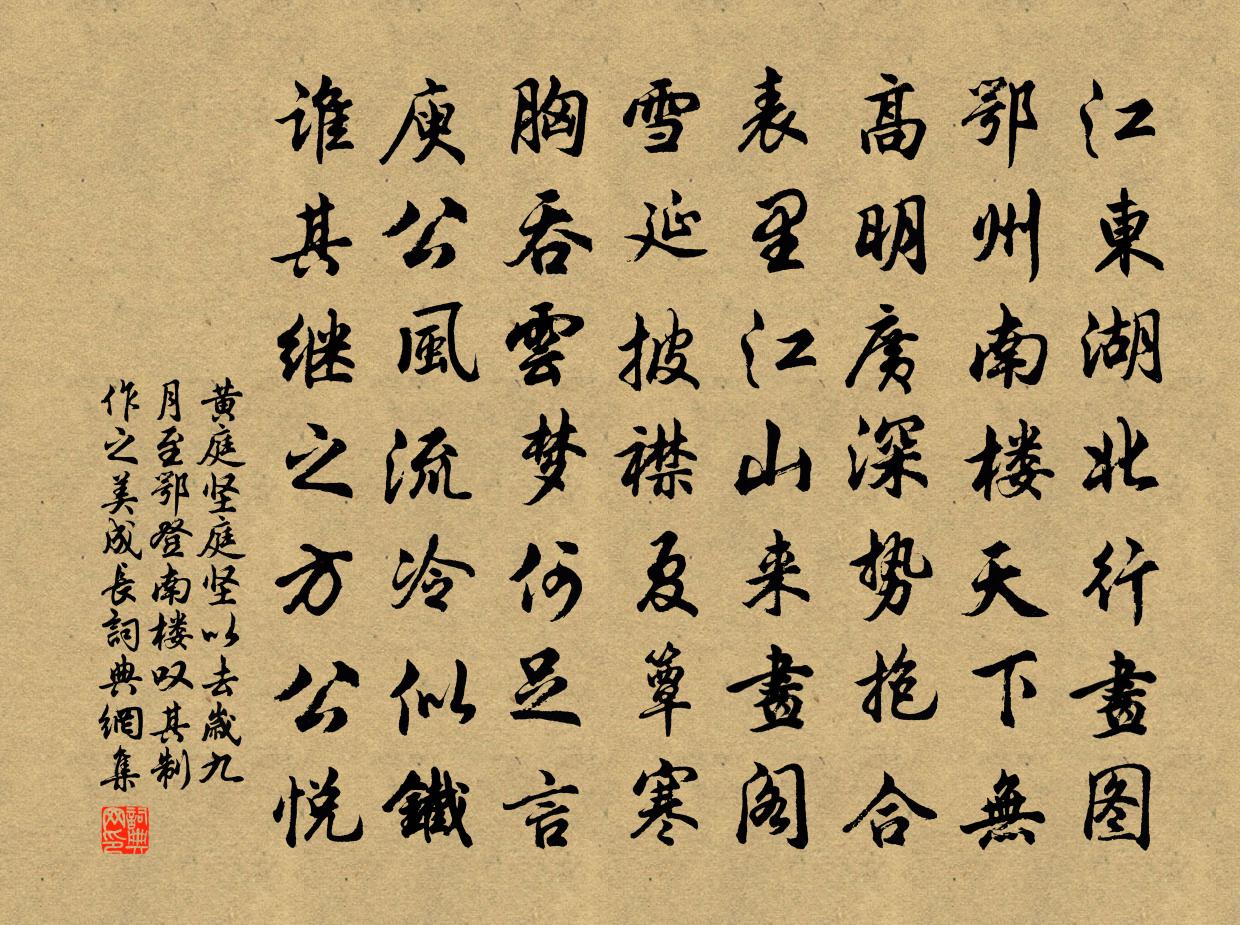 江東湖北行畫图
鄂州南楼天下無
高明廣深势抱合
表里江山来畫阁
雪延披襟夏簟寒
胸吞雲梦何足言
庾公風流冷似鐵
谁其继之方公悦
黄庭坚庭坚以去歲九
月至鄂登南楼叹其制
作之美成長詞典網集
詞典网印